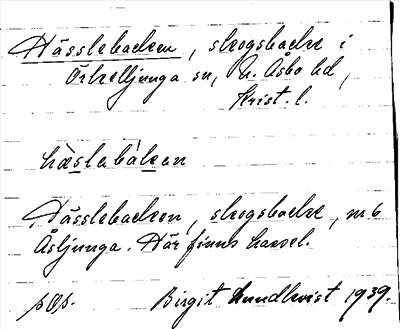 Hässlebacken, skogsbacke i
Örkelljunga sn, N. Åsbo hd,
Krist. l.
hæslabákan
Hässlebacken, skogsbacke, n 6
Åsljunga. Här finns hassel.
Birgit Lundkvist 1939.